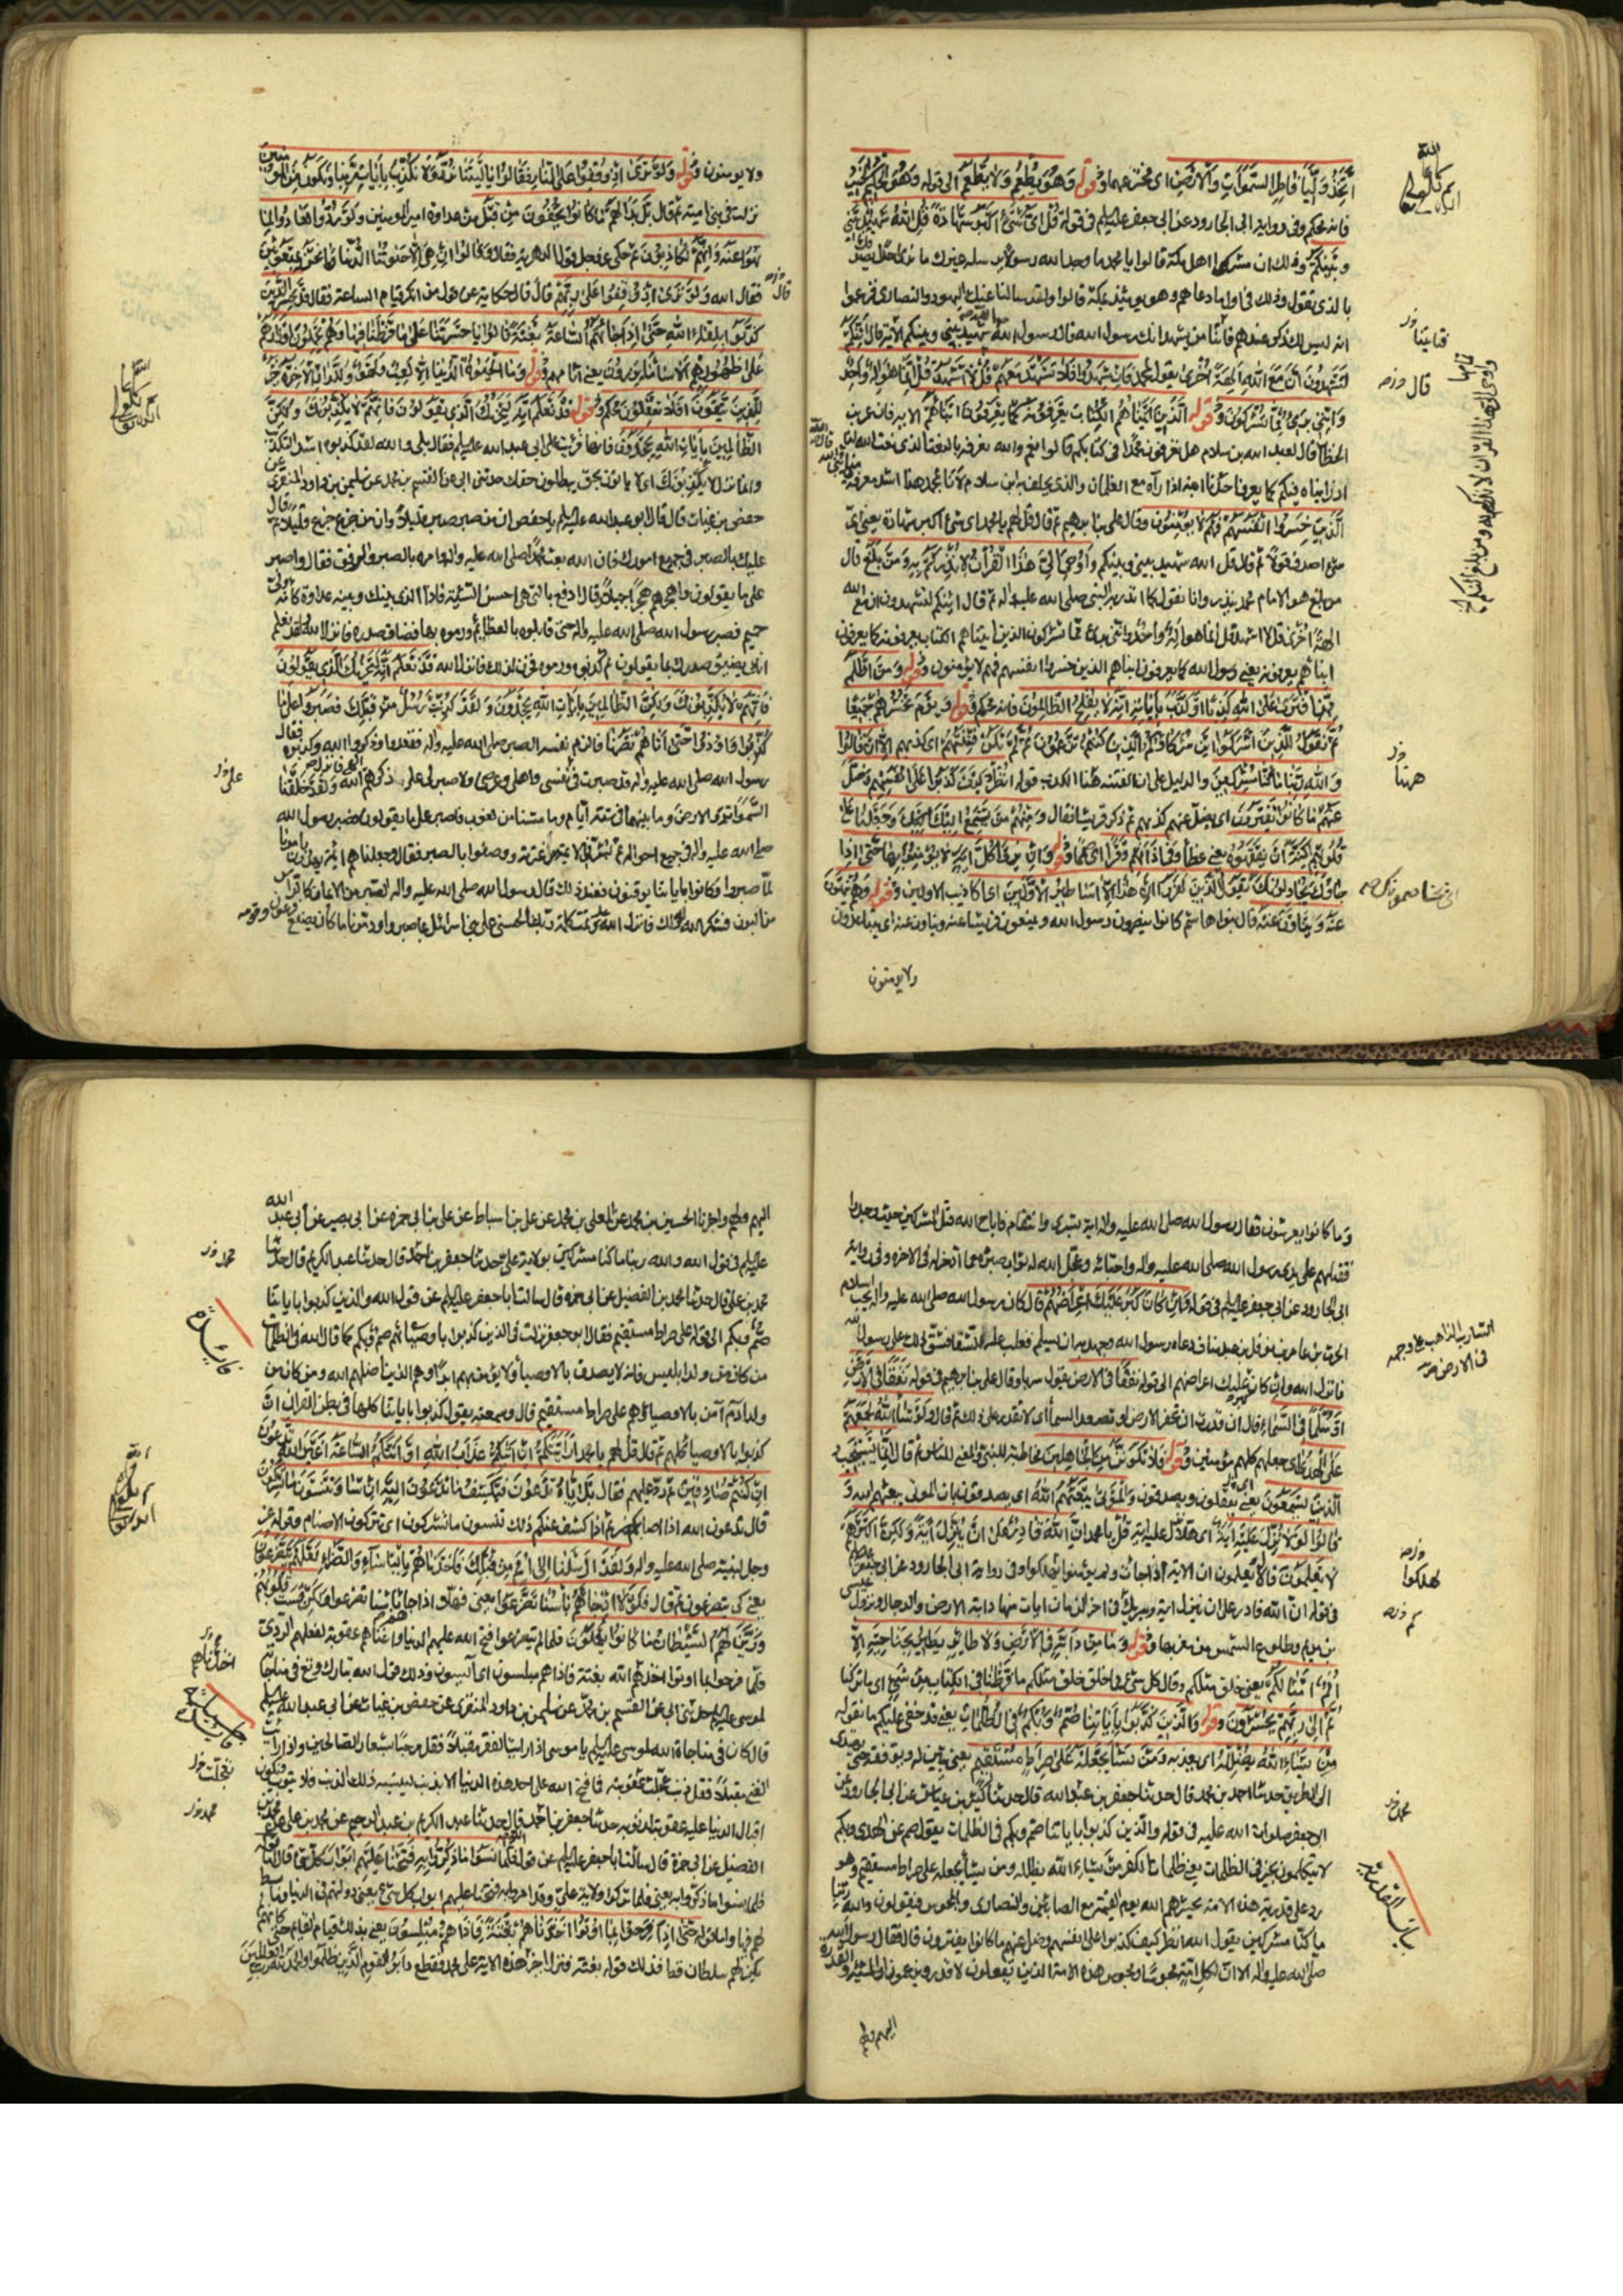 اتخذ وليا فاطر السموات والارض اى مخترعهما وقوله وهو يطعم ولا يطعم الى قوله وهو الحكيم الخبير
فانه محكم وفى رواية ابى الجارود عن ابى جعفر عليه السلم فى قوله قل اى شىء اكبر شهادة قل الله شهيد بينى
وبينكم وذلك ان مشركى اهل مكة قالوا يا محمد ما وجد الله رسولا يرسله غيرك ما نرى احدا يصدقك
بالذى تقول وذلك فى اول ما دعاهم وهو يومئذ بمكة قالوا ولقد سالنا عنك اليهود والنصارى فزعموا
انه ليس لك ذكر عندهم فأتنا من يشهد انك رسول الله قال رسول الله الله شهيد بينى وبينكم الاية قال ائنكم
لتشهدون ان مع الله الهة اخرى يقول لمحمد فان شهدوا فلا تشهد معهم قل لا اشهد قل انما هو اله واحد
واننى برىء مما تشركون وقوله الذين اتيناهم الكتاب يعرفونه كما يعرفون ابناءهم الاية فان عمر بن
الخطاب قال لعبد الله بن سلام هل تعرفون محمدا فى كتابكم قالوا نعم والله نعرفه بالنعت الذى نعت الله لنا
اذا رايناه فيكم كما يعرف احدنا ابنه اذا رآه مع الغلمان والذى يحلف به ابن سلام لانا بمحمد هذا اشد معرفة
الذين خسروا انفسهم فهم لا يؤمنون وقال على بن ابرهيم ثم قال قل لهم يا محمد اى شىء اكبر شهادة يعنى اى
شىء اصدق قولا ثم قال قل الله شهيد بينى وبينكم واوحى الى هذا القرآن لانذركم به ومن بلغ قال
من بلغ هو الامام محمد ينذر وانا نقول كما انذر به النبى صلى الله عليه واله ثم قال ائنكم لتشهدون ان مع الله
الهة اخرى قل لا اشهد قل انما هو اله واحد واننى برىء مما تشركون الذين اتيناهم الكتاب يعرفونه كما يعرفون
ابناءهم يعرفونه يعنى رسول الله كما يعرفون ابناءهم الذين خسروا انفسهم فهم لا يؤمنون وقوله ومن اظلم
ممن افترى على الله كذبا او كذب باياته انه لا يفلح الظالمون فانه محكم وقوله ويوم نحشرهم جميعا
ثم نقول للذين اشركوا اين شركاؤكم الذين كنتم تزعمون ثم لم تكن فتنتهم اى كذبهم الا ان قالوا
والله ربنا ما كنا مشركين والدليل على ان الفتنة ههنا الكذب قوله انظر كيف كذبوا على انفسهم وضل
عنهم ما كانوا يفترون اى يضل عنهم كذبهم ثم ذكر قريشا فقال ومنهم من يستمع اليك وجعلنا على
قلوبهم اكنة ان يفقهوه يعنى غطاء وفى اذانهم وقرا اى صمما وقوله وان يروا كل اية لا يؤمنوا بها حتى اذا
جاؤك يجادلونك يقول الذين كفروا ان هذا الا اساطير الاولين اى اكاذيب الاولين وقوله وهم ينهون
عنه وينأون عنه قال بنو هاشم كانوا ينصرون رسول الله ويمنعون قريشا عنه وينأون عنه اى يتباعدون
ولا يؤمنون
ولا يومنون وقوله ولو ترى اذ وقفوا على النار فقالوا يا ليتنا نرد ولا نكذب بايات ربنا ونكون من المؤمنين
نزلت فى بنى امية ثم قال بل بدا لهم ما كانوا يخفون من قبل من عداوة امير المومنين ولو ردوا لعادوا لما
نهوا عنه وانهم لكاذبون ثم حكى عز وجل قول الدهرية فقال وقالوا ان هى الا حيوتنا الدنيا وما نحن بمبعوثين
فقال الله ولو ترى اذ وقفوا على ربهم قال قال حكاية عن قول من انكر قيام الساعة فقال قد خسر الذين
كذبوا بلقاء الله حتى اذا جاءتهم الساعة بغتة قالوا يا حسرتنا على ما فرطنا فيها وهم يحملون اوزارهم
على ظهورهم الا ساء ما يزرون يعنى آثامهم وقوله وما الحيوة الدنيا الا لعب ولهو وللدار الاخرة خير
للذين يتقون افلا تعقلون محكم وقوله قد نعلم انه ليحزنك الذى يقولون فانهم لا يكذبونك ولكن
الظالمين بايات الله يجحدون فانها قرئت على ابى عبد الله عليه السلم فقال بلى والله لقد كذبوه اشد التكذيب
وانما نزلت لا يكذبونك اى لا ياتون بحق يبطلون حقك حدثنى ابى عن القسم بن محمد عن سليمن بن داود المنقرى عن
حفص بن غياث قال قال ابو عبد الله عليه السلم يا حفص ان من صبر صبر قليلا وان من جزع جزع قليلا ثم قال
عليك بالصبر فى جميع امورك فان الله بعث محمدا صلى الله عليه واله وامره بالصبر والرفق فقال واصبر
على ما يقولون واهجرهم هجرا جميلا قال ادفع بالتى هى احسن السيئة فاذا الذى بينك وبينه عداوة كانه ولى
حميم فصبر رسول الله صلى الله عليه واله حتى قابلوه بالعظائم ورموه بها فضاق صدره فانزل الله ولقد نعلم
انك يضيق صدرك بما يقولون ثم كذبوه ورموه فحزن لذلك فانزل الله قد نعلم انه ليحزنك الذى يقولون
فانهم لا يكذبونك ولكن الظالمين بايات الله يجحدون ولقد كذبت رسل من قبلك فصبروا على ما
كذبوا واوذوا حتى اتاهم نصرنا فالزم نفسه الصبر صلى الله عليه واله فقعدوا وذكروا الله وكذبوه فقال
رسول الله صلى الله عليه واله قد صبرت فى نفسى واهلى وعرضى ولا صبر لى على ذكرهم الهى فانزل الله ولقد خلقنا
السموات والارض وما بينهما فى ستة ايام وما مسنا من لغوب فاصبر على ما يقولون فصبر رسول الله
صلى الله عليه واله فى جميع احواله ثم بشر فى الائمة من عترته ووصفوا بالصبر فقال وجعلناهم ائمة يهدون بامرنا
لما صبروا وكانوا باياتنا يوقنون فعند ذلك قال رسول الله صلى الله عليه واله الصبر من الايمان كالراس
من البدن فشكر الله له ذلك فانزل الله عليه وتمت كلمة ربك الحسنى على بنى اسرائيل بما صبروا ودمرنا ما كان يصنع فرعون وقومه
وما كانوا يعرشون فقال رسول الله صلى الله عليه واله اية بشرى وانتقام فاباح الله قتل المشركين حيث وجدوا
فقتلهم على يدى رسول الله صلى الله عليه واله واحبائه وعجل الله له ثواب صبره مع ما ادخر له فى الاخرة وفى رواية
ابى الجارود عن ابى جعفر عليه السلم فى قوله وان كان كبر عليك اعراضهم قال كان رسول الله صلى الله عليه واله يحب اسلام
الحرث بن عامر بن نوفل بن عبد مناف دعاه رسول الله وجهد به ان يسلم فغلب عليه الشقا فشق ذلك على رسول الله
فانزل الله وان كان كبر عليك اعراضهم الى قوله نفقا فى الارض يقول سربا وقال على بن ابرهيم فى قوله نفقا فى الارض
او سلما فى السماء قال ان قدرت ان تحفر الارض او تصعد السماء اى لا تقدر على ذلك ثم قال ولو شاء الله لجمعهم
على الهدى اى جعلهم كلهم مؤمنين وقوله فلا تكونن من الجاهلين مخاطبة للنبى والمعنى للناس ثم قال انما يستجيب
الذين يسمعون يعنى يعقلون ويصدقون والموتى يبعثهم الله اى يصدقون بان الموتى يبعثهم الله و
قالوا لولا نزل عليه اية اى هلا نزل عليه اية قل يا محمد ان الله قادر على ان ينزل اية ولكن اكثرهم
لا يعلمون قال لا يعلمون ان الاية اذا جائت ولم يومنوا بها لهلكوا وفى رواية ابى الجارود عن ابى جعفر
فى قوله ان الله قادر على ان ينزل اية وسيريك فى اخر الزمان ايات منها دابة الارض والدجال ونزول عيسى
بن مريم وطلوع الشمس من مغربها وقوله وما من دابة فى الارض ولا طائر يطير بجناحيه الا
امم امثالكم يعنى خلق مثلكم وقال كل شىء مما خلق خلق مثلكم ما فرطنا فى الكتاب من شىء اى ما تركنا
ثم الى ربهم يحشرون وقوله والذين كذبوا باياتنا صم وبكم فى الظلمات يعنى قد خفى عليكم ما تقوله
من يشاء الله يضلله اى يعذبه ومن يشأ يجعله على صراط مستقيم يعنى يبين له ويوفقه حتى يهتدى
الى الطريق حدثنا احمد بن محمد قال حدثنا جعفر بن عبد الله قال حدثنا كثير بن عياش عن ابى الجارود عن
ابى جعفر صلوات الله عليه فى قوله والذين كذبوا باياتنا صم وبكم فى الظلمات يقول صم عن الهدى وبكم
لا يتكلمون بخير فى الظلمات يعنى ظلمات الكفر من يشاء الله يضلله ومن يشأ يجعله على صراط مستقيم وهو
رد على قدرية هذه الامة يحشرهم الله يوم القيمة مع الصابئين والنصارى والمجوس فيقولون والله ربنا
ما كنا مشركين يقول الله انظر كيف كذبوا على انفسهم وضل عنهم ما كانوا يفترون قال فقال رسول الله
صلى الله عليه واله الا ان لكل امة مجوسا ومجوس هذه الامة الذين يقولون لا قدر ويزعمون ان المشية والقدرة
اليهم ولهم
اليهم ولهم واخبرنا الحسين بن محمد عن المعلى بن محمد عن على بن اسباط عن على بن ابى حمزة عن ابى بصير عن ابى عبد الله
عليه السلم فى قول الله والله ربنا ما كنا مشركين بولاية على حدثنا جعفر بن احمد قال حدثنا عبد الكريم قال حدثنا
محمد بن على قال حدثنا محمد بن الفضيل عن ابى حمزة قال سالت ابا جعفر عليه السلم عن قول الله والذين كذبوا باياتنا
صم وبكم الى قوله على صراط مستقيم فقال ابو جعفر نزلت فى الذين كذبوا باوصيائهم صم وبكم كما قال الله فى الظلمات
من كان من ولد ابليس فانه لا يصدق بالاوصياء ولا يؤمن بهم ابدا وهم الذين اضلهم الله ومن كان من
ولد ادم آمن بالاوصياء وهم على صراط مستقيم قال وسمعته يقول كذبوا باياتنا كلها فى بطن القران ان
كذبوا بالاوصياء كلهم ثم قال قل لهم يا محمد ارايتكم ان اتيكم عذاب الله او اتتكم الساعة اغير الله تدعون
ان كنتم صادقين ثم رد عليهم فقال بل اياه تدعون فيكشف ما تدعون اليه ان شاء وتنسون ما تشركون
قال تدعون الله اذا اصابكم ضر ثم اذا كشف عنكم ذلك تنسون ما تشركون اى تتركون الاصنام وقوله عز
وجل لنبيه صلى الله عليه واله ولقد ارسلنا الى امم من قبلك فاخذناهم بالبأساء والضراء لعلهم يتضرعون
يعنى كى يتضرعون ثم قال فلولا اذ جاءهم بأسنا تضرعوا يعنى فهلا اذا جاءهم بأسنا تضرعوا ولكن قست قلوبهم
وزين لهم الشيطان ما كانوا يعملون فلما لم يتضرعوا فتح الله عليهم الدنيا واغناهم عقوبة لفعلهم الردى
فلما فرحوا بما اوتوا اخذهم الله بغتة فاذا هم مبلسون اى آيسون وذلك قول الله تبارك وتع فى مناجاة
لموسى عليه السلم حدثنى ابى عن القسم بن محمد عن سليمن بن داود المنقرى عن حفص بن غياث عن ابى عبد الله عليه السلم
قال كان فى مناجاة الله لموسى عليه السلم يا موسى اذا رايت الفقر مقبلا فقل مرحبا بشعار الصالحين واذا رايت
الغنى مقبلا فقل ذنب عجلت عقوبته فما فتح الله على احد هذه الدنيا الا بذنب لينسيه ذلك الذنب فلا يتوب فيكون
اقبال الدنيا عليه عقوبة لذنوبه حدثنا جعفر بن احمد قال حدثنا عبد الكريم بن عبد الرحيم عن محمد بن على عن محمد بن
الفضيل عن ابى حمزة قال سالت ابا جعفر عليه السلم عن قول الله فلما نسوا ما ذكروا به فتحنا عليهم ابواب كل شىء قال اما قوله
فلما نسوا ما ذكروا به يعنى فلما تركوا ولاية على وقد امروا به فتحنا عليهم ابواب كل شىء يعنى دولتهم فى الدنيا وما بسط
لهم فيها واما قوله حتى اذا فرحوا بما اوتوا اخذناهم بغتة فاذا هم مبلسون يعنى بذلك قيام القائم حتى كانهم
لم يكن لهم سلطان قط فذلك قوله بغتة فنزل اخر هذه الاية على محمد فقطع دابر القوم الذين ظلموا والحمد لله رب العالمين